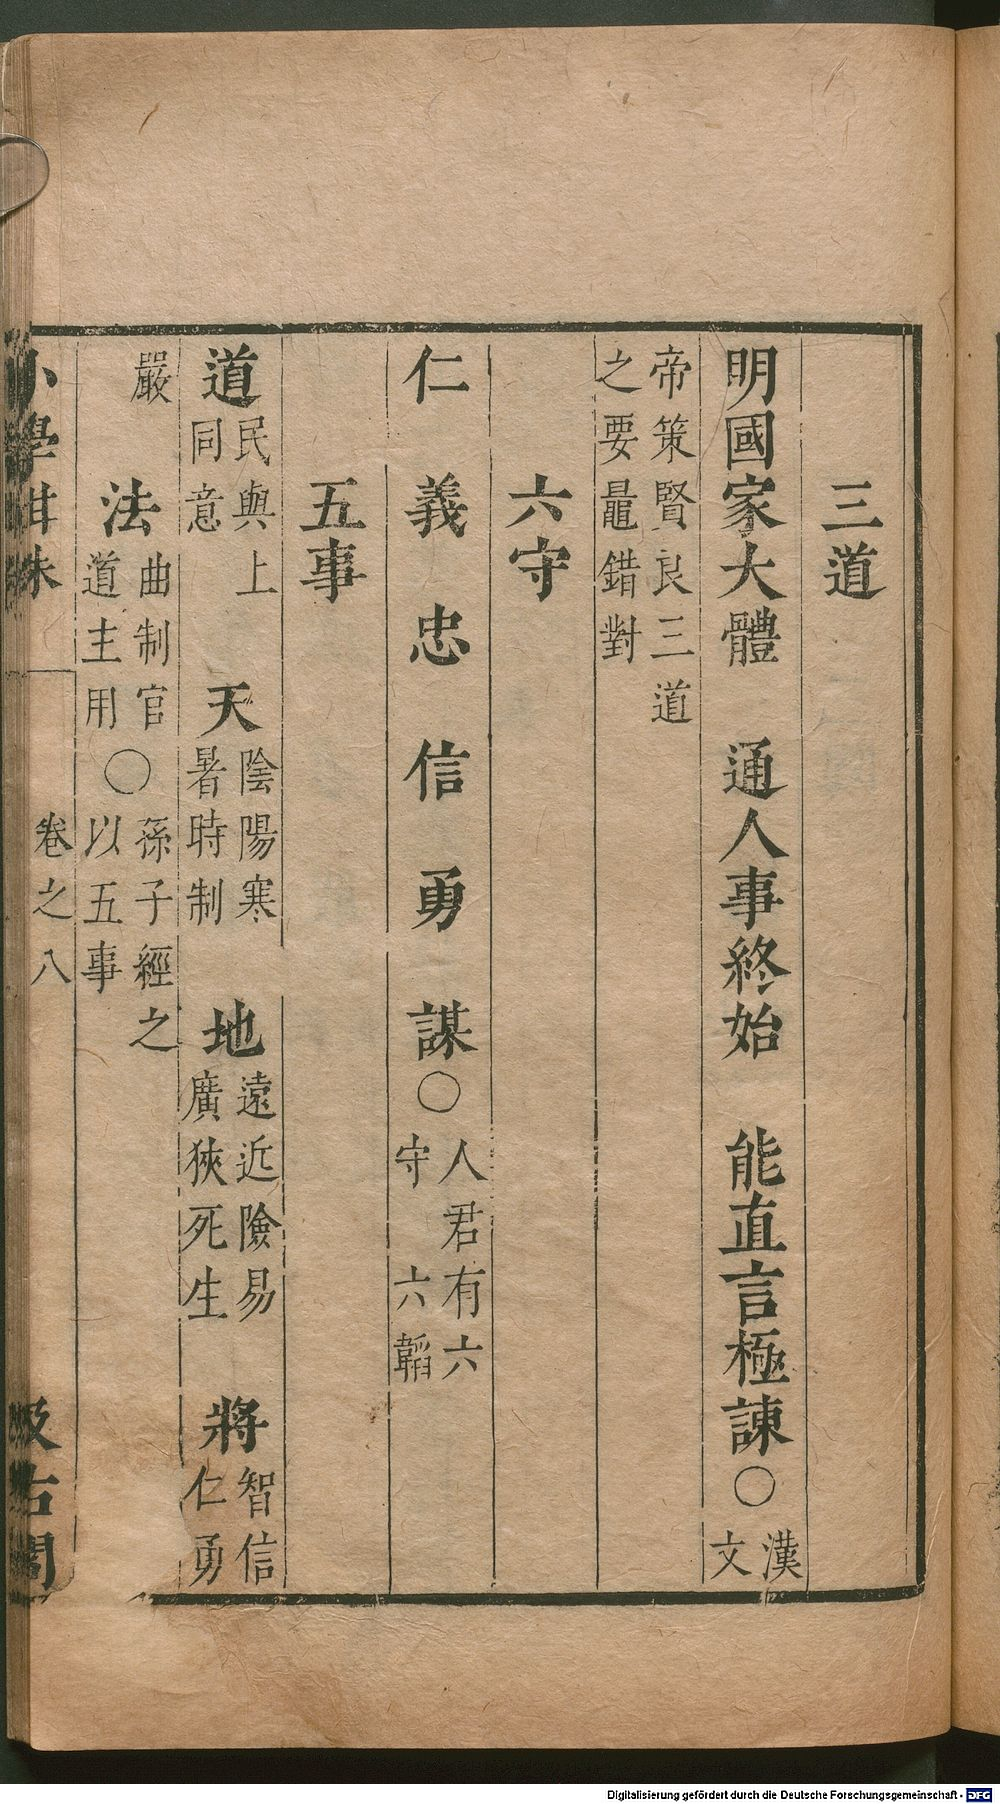 三道
明國家大體　通人事終始　能直言極諫○漢文
帝策賢良三道
之要鼂錯對
六守
仁　義　忠　信　勇　謀○人君有六守　六韜
五事
道民與上同意　天陰陽寒暑時制　地遠近險易廣狹死生　將智信仁勇
嚴　法曲制官道主用○孫子經之以五事
小學紺珠　卷之八　汲古閣
Digitalisierung gefördert durch die Deutsche Forschungsgemeinschaft - DFG